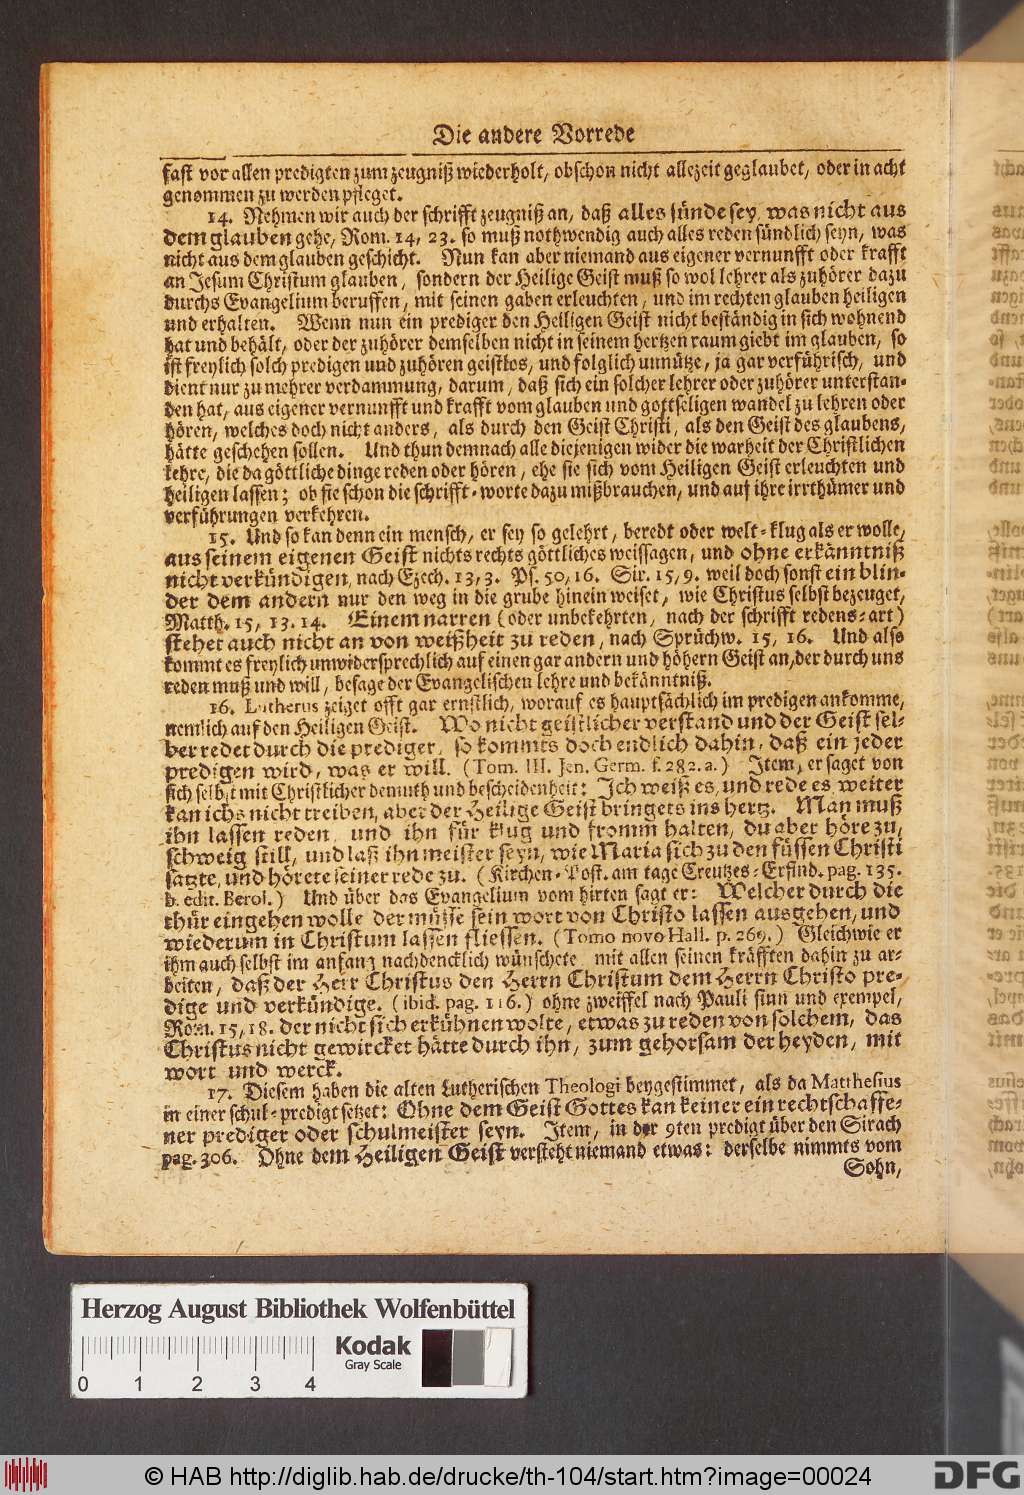 Die andere Vorrede
fast vor allen predigten zum zeugniß wiederholt, obschon nicht allezeit geglaubet, oder in acht
genommen zu werden pfleget.
14. Nehmen wir auch der schrifft zeugniß an, daß alles sünde sey, was nicht aus
dem glauben gehe, Rom. 14, 23. so muß nothwendig auch alles reden sündlich seyn, was
nicht aus dem glauben geschicht. Nun kan aber niemand aus eigener vernunfft oder krafft
an Jesum Christum glauben, sondern der Heilige Geist muß so wol lehrer als zuhörer dazu
durchs Evangelium beruffen, mit seinen gaben erleuchten, und im rechten glauben heiligen
und erhalten. Wenn nun ein prediger den Heiligen Geist nicht beständig in sich wohnend
hat und behält, oder der zuhörer demselben nicht in seinem hertzen raum giebt im glauben, so
ist freylich solch predigen und zuhören geistlos, und folglich unnütze, ja gar verführisch, und
dient nur zu mehrer verdammung, darum, daß sich ein solcher lehrer oder zuhörer unterstan-
den hat, aus eigener vernunfft und krafft vom glauben und gottseligen wandel zu lehren oder
hören, welches doch nicht anders, als durch den Geist Christi, als den Geist des glaubens,
hätte geschehen sollen. Und thun demnach alle diejenigen wider die warheit der Christlichen
lehre, die da göttliche dinge reden oder hören, ehe sie sich vom Heiligen Geist erleuchten und
heiligen lassen; ob sie schon die schrifft-worte dazu mißbrauchen, und auf ihre irrthümer und
verführungen verkehren.
15. Und so kan denn ein mensch, er sey so gelehrt, beredt oder welt-klug als er wolle,
aus seinem eigenen Geist nichts rechts göttliches weissagen, und ohne erkänntniß
nicht verkündigen, nach Ezech. 13, 3. Ps. 50, 16. Sir. 15, 9. weil doch sonst ein blin-
der dem andern nur den weg in die grube hinein weiset, wie Christus selbst bezeuget,
Matth. 15, 13. 14. Einem narren (oder unbekehrten, nach der schrifft redens-art)
stehet auch nicht an von weißheit zu reden, nach Sprüchw. 15, 16. Und also
kommt es freylich unwidersprechlich auf einen gar andern und höhern Geist an, der durch uns
reden muß und will, besage der Evangelischen lehre und bekänntniß.
16. Lutherus zeiget offt gar ernstlich, worauf es hauptsächlich im predigen ankomme,
nemlich auf den Heiligen Geist. Wo nicht geistlicher verstand und der Geist sel-
ber redet durch die prediger, so kommts doch endlich dahin, daß ein jeder
predigen wird, was er will. (Tom. III. Jen. Germ. f. 282. a.) Item, er saget von
sich selbst mit Christlicher demuth und bescheidenheit: Ich weiß es und rede es, weiter
kan ichs nicht treiben, aber der Heilige Geist bringets ins hertz. Man muß
ihn lassen reden, und ihn für klug und fromm halten, du aber höre zu,
schweig still, und laß ihn meister seyn, wie Maria sich zu den füssen Christi
satzte, und hörete seiner rede zu. (Kirchen-Post. am tage Creutzes-Erfind. pag. 135.
b. edit. Berol.) Und über das Evangelium vom hirten sagt er: Welcher durch die
thür eingehen wolle der müsse sein wort von Christo lassen ausgehen, und
wiederum in Christum lassen fliessen. (Tomo novo Hall. p. 269.) Gleichwie er
ihm auch selbst im anfang nachdencklich wünschete mit allen seinen kräfften dahin zu ar-
beiten, daß der Herr Christus den Herrn Christum dem Herrn Christo pre-
dige und verkündige. (ibid. pag. 116.) ohne zweiffel nach Pauli sinn und exempel,
Rom. 15, 18. der nicht sich erkühnen wolte, etwas zu reden von solchem, das
Christus nicht gewircket hätte durch ihn, zum gehorsam der heyden, mit
wort und werck.
17. Diesem haben die alten Lutherischen Theologi beygestimmet, als da Matthesius
in einer schul-predigt setzet: Ohne dem Geist Gottes kan keiner ein rechtschaffe-
ner prediger oder schulmeister seyn. Item, in der 9ten predigt über den Sirach
pag. 306. Ohne dem Heiligen Geist versteht niemand etwas: derselbe nimmts vom
Sohn,
Herzog August Bibliothek Wolfenbüttel
Kodak
Gray Scale
0 1 2 3 4
© HAB http://diglib.hab.de/drucke/th-104/start.htm?image=00024
DFG